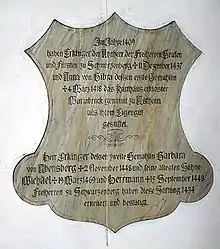 Im Jahre 1409
haben Erkinger der Ahnherr der Freiherren Grafen
und Fürsten zu Schwarzenberg † 11 Dezember 1437
und Anna von Bibra dessen erste Gemahlin
† 4 März 1418 das Karthäuserkloster
Mariabrück genannt zu Astheim
aus ihrem Eigengut
gestiftet.
Herr Erkinger dessen zweite Gemahlin Barbara
von Abensberg † 2 November 1448 und seine ältesten Söhne
Michael † 19 März 1469 und Herrmann † 18 September 1448
Freiherren zu Schwarzenberg haben diese Stiftung 1434
erneuert und bestätigt.